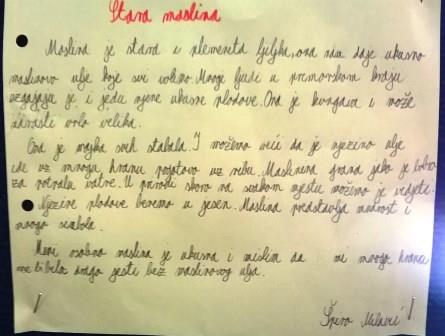 Stara maslina
Maslina je stara i plemenita biljka, ona nam daje ukusno
maslinovo ulje koje svi volimo. Mnogi ljudi u primorskom kraju
uzgajaju je i jedu njene ukusne plodove. Ona je kvrgava i može
narasti vrlo velika.
Ona je majka svih stabala. I možemo reći da je njezino ulje
ide uz mnogu hranu pogotovo uz ribu. Maslinova grana jako je dobra
za potpalu vatre. U prirodi skoro na svakom mjestu možemo je vidjeti.
Njezine plodove beremo u jesen. Maslina predstavlja mudrost i
mnogo simbola.
Meni osobno maslina je ukusna i mislim da mi mnogo hrane
ne bi bilo drago jesti bez maslinovog ulja.
Špiro